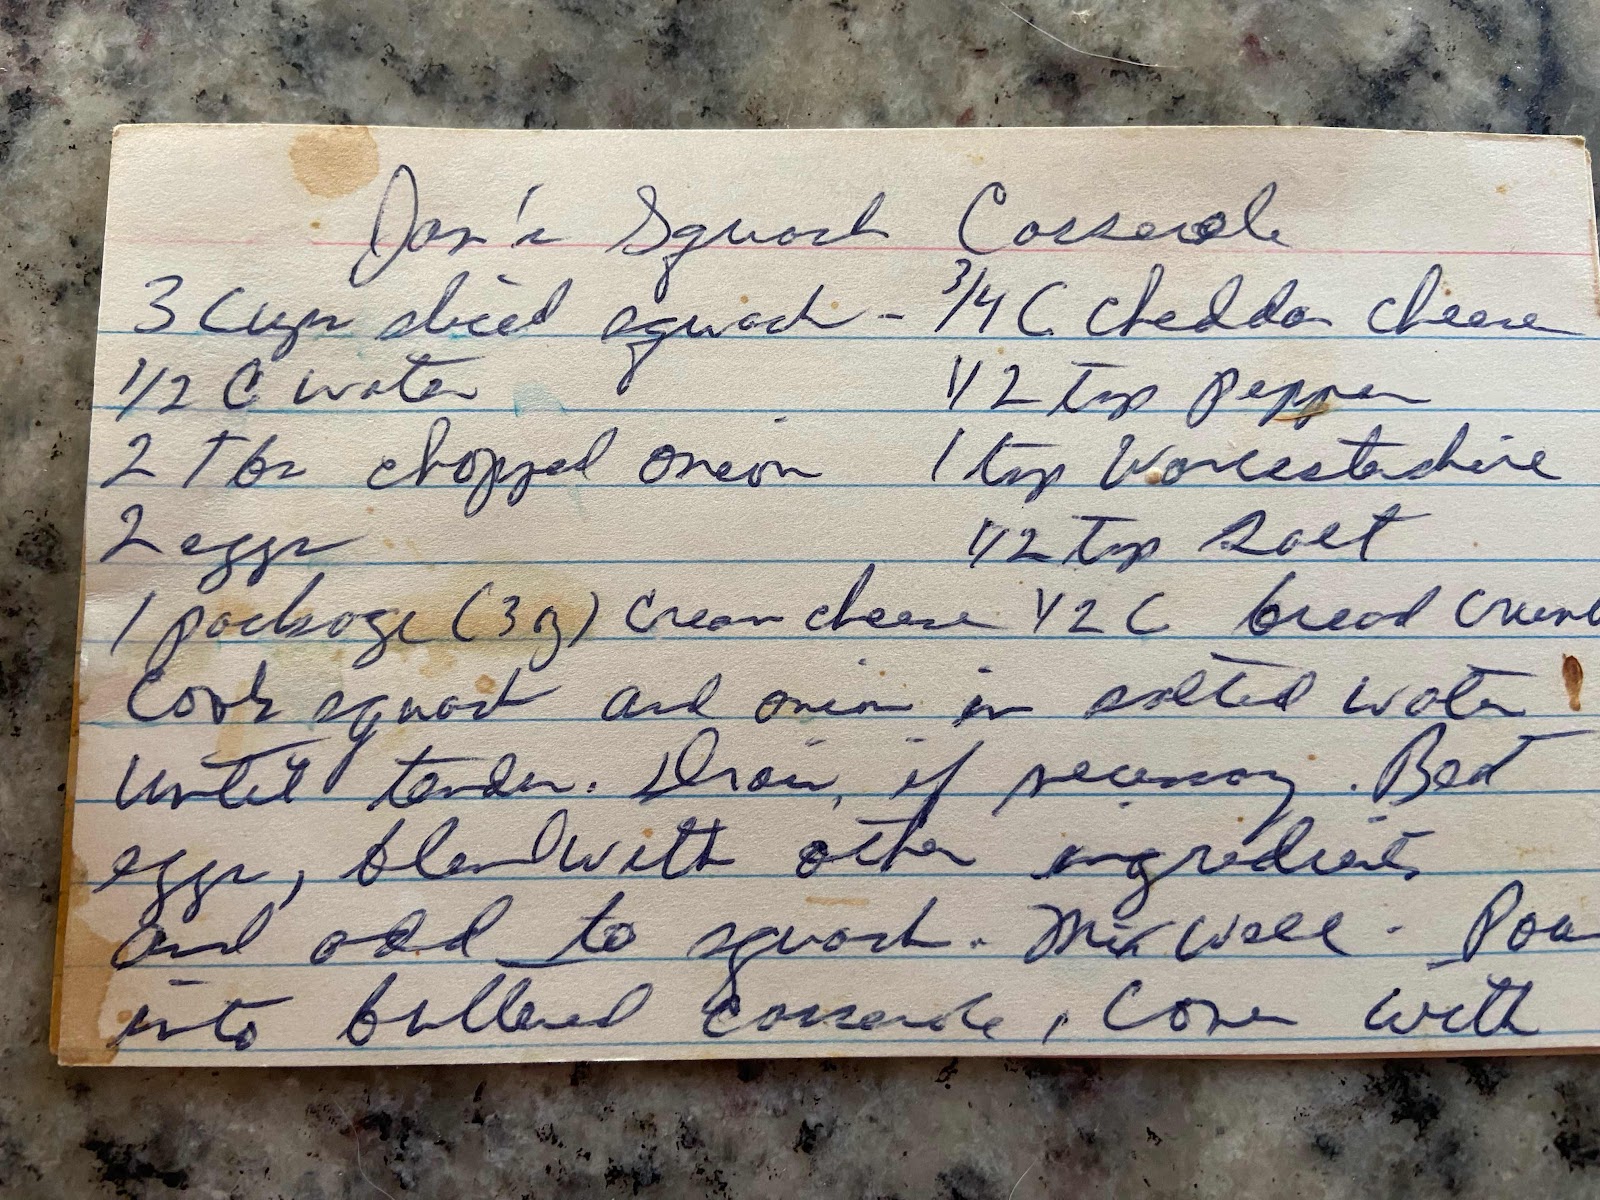 Jan's Squash Casserole
3 Cups sliced squash - 3/4 C. cheddar cheese
1/2 C water 1/2 tsp pepper
2 Tbs chopped onion 1 tsp Worcestershire
2 eggs 1/2 tsp Salt
1 package (3 oz) cream cheese 1/2 C bread crumb
Cook squash and onion in salted water
until tender. Drain, if necessary. Beat
eggs, blend with other ingredients
and add to squash. Mix well. Pour
into buttered casserole, Cover with